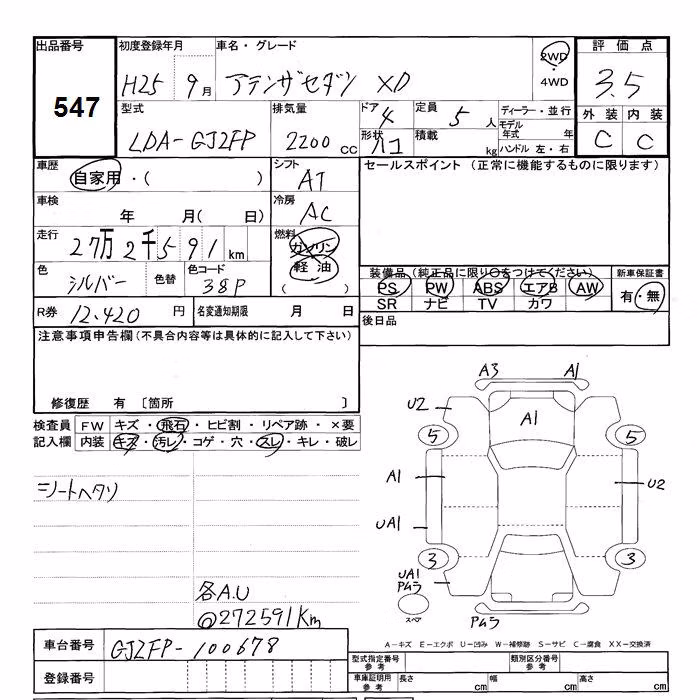 出品番号 初度登録年月 車名・グレード 2WD・4WD 評価点
547 H25 9月 アテンザセダン XD 3.5
型式 排気量 ドア 4 定員 5人 ディーラー・並行 外装 内装
LDA-GJ2FP 2200cc 形状 ハコ 積載 kg モデル年式 年 ハンドル 左・右 C C
車歴 シフト セールスポイント (正常に機能するものに限ります)
自家用・( ) AT
車検 冷房
年 月( 日) AC
走行 燃料
27万2千591km ガソリン
軽油
色 色替 色コード ( ) 装備品(純正品に限り○をつけてください) 新車保証書
シルバー 38P PS PW ABS エアB AW 有・無
SR ナビ TV カワ
R券 12.420円 名変通知期限 月 日 後日品
注意事項申告欄(不具合内容等は具体的に記入して下さい)
修復歴 有 〔箇所 〕
検査員 FW キズ・飛石・ヒビ割・リペア跡・×要
記入欄 内装 キズ・汚レ・コゲ・穴・スレ・キレ・破レ
シートヘタリ
各A.U
@272591Km
A3 A1
U2 A1
5 5
A1 U2
UA1
3 3
UA1
Pムラ
スペア Pムラ
A-キズ E-エクボ U-凹み W-補修跡 S-サビ C-腐食 XX-交換済
車台番号 GJ2FP-100678 型式指定番号 参考 類別区分番号 参考
登録番号 車庫証明用 参考 長さ cm 幅 cm 高さ cm